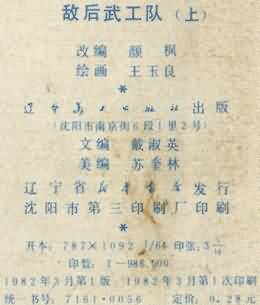 敌后武工队（上）
改编 颜 枫
绘画 王玉良
*
辽宁美术出版社出版
(沈阳市南京街6段1里2号)
文编 戴淑英
美编 苏奎林
辽宁省新华书店发行
沈阳市第三印刷厂印刷
*
开本: 787×1092 1/64 印张: 3
印数: 1—988,500
1982年3月第1版 1982年3月第1次印刷
统一书号: 7161·0056 定价: 0.28元